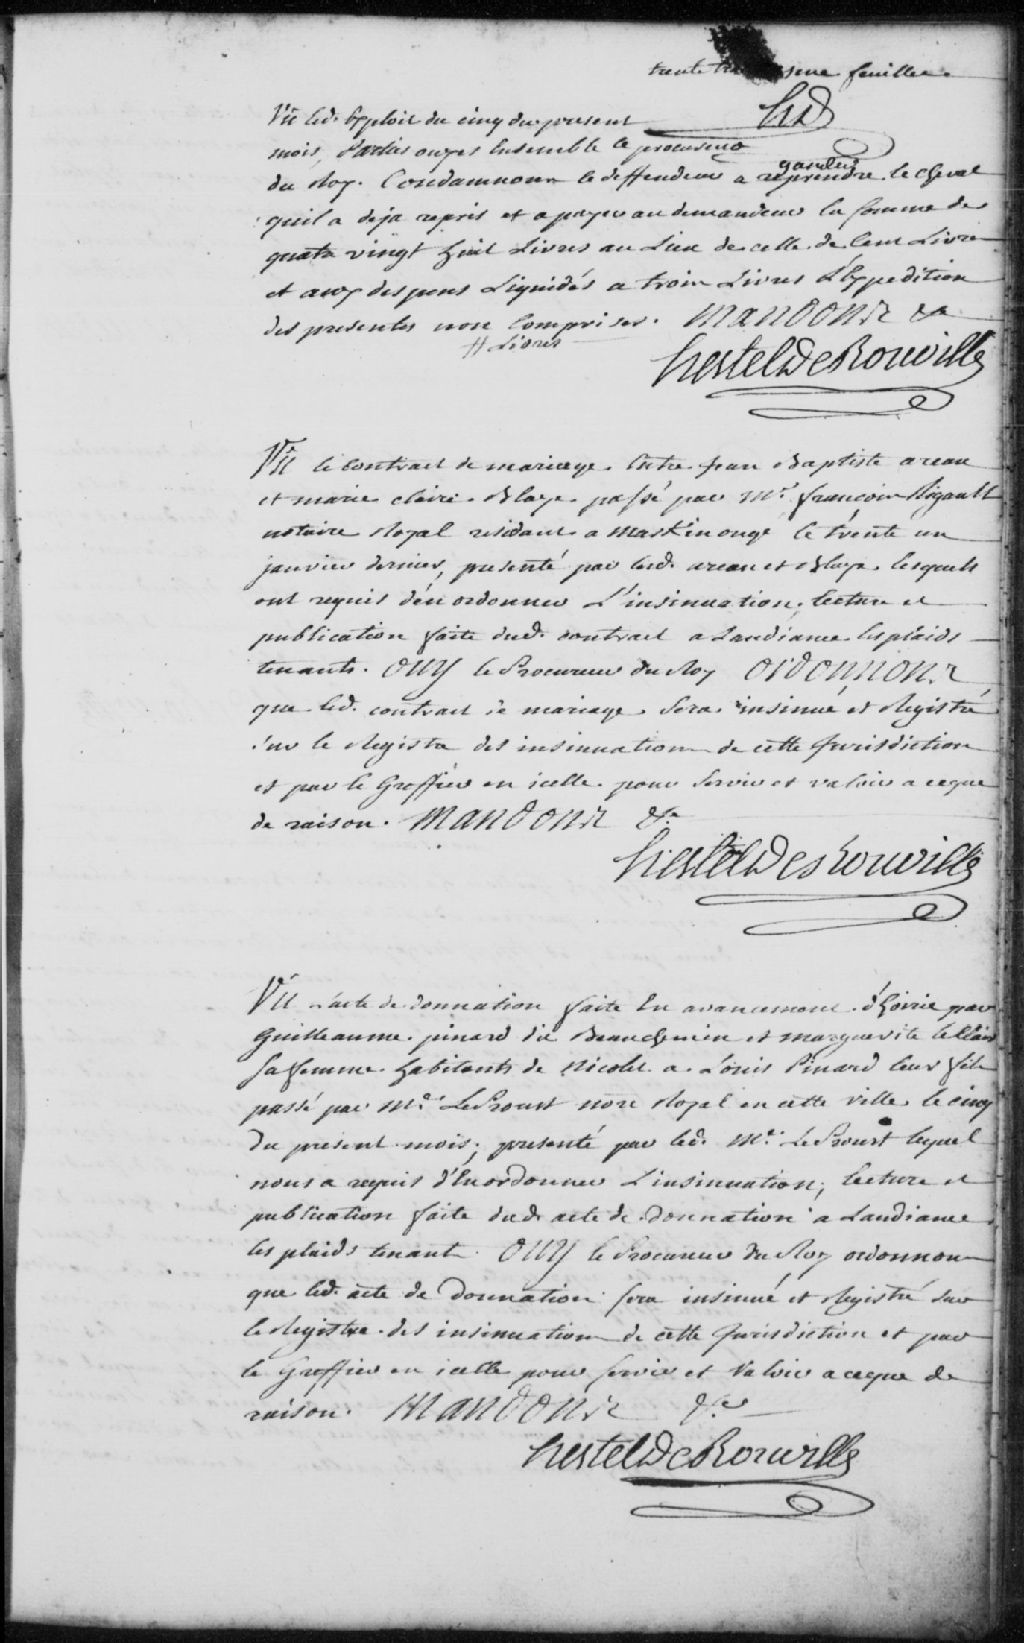 trente feuillee
hd
Vû led. Exploit du cinq du present
mois, Parties ouyes Ensemble le procureur
du Roy. Condamnons le deffendeur a garder
reprendre le cheval
quil a deja repris et a payer au demandeur la somme de
quatre vingt huit Livres au Lieu de celle de Cent Livres
et aux despens Liquidés a trois Livres L'Expedition
des presentes non Comprises. Mandons &a
// Livres
hertel De Rouville
Vû le contract de mariage Entre jean Baptiste areau
et marie claire Blaye passé par Me. françois Rigault
notaire Royal residant a Maskinongé le trente un
janvier dernier, presenté par lesd. areau et Blaye lesquels
ont requis d'en ordonner L'insinuation, Lecture et
publication faite dud. contract a Laudiance les plaids
tenants. OUY le Procureur du Roy Ordonnons
que led. contract de mariage sera insinué et Registré
sur le Registre des insinuations de cette Jurisdiction
et par le Greffier en icelle pour servir et valoir a ce que
de raison. Mandons &a
hertel De Rouville
Vû L'acte de Donnation faite En avancement d'hoirie par
Guilleaume pinard dit Beauchemin et marguerite leClair
sa femme habitants de Nicolet a Louis Pinard leur fils
passé par Me. LeProust nore Royal en cette ville le cinq
du present mois; presenté par led. Me. LeProust lequel
nous a requis d'En ordonner L'insinuation; Lecture et
publication faite dud. acte de Donnation a Laudiance
les plaids tenant. OUY le Procureur du Roy ordonnons
que led. acte de Donnation sera insinué et Registré sur
le Registre des insinuations de cette Jurisdiction et par
le Greffier en icelle pour servir et Valoir a ce que de
raison. Mandons &a
hertel De Rouville